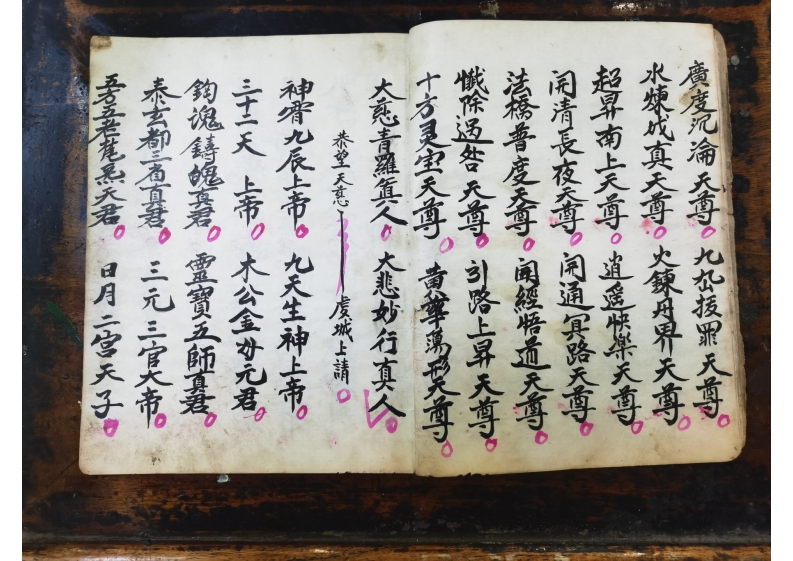 廣度沉淪天尊。九幽拔罪天尊。
水煉成真天尊。火鍊丹界天尊。
超昇南上天尊。逍遥快樂天尊。
開清長夜天尊。開通冥路天尊。
法橋普度天尊。開經悟道天尊。
懺除過咎天尊。引路上昇天尊。
十方灵宝天尊。黄華蕩形天尊。
大慈青羅真人。大悲妙行真人。
恭望天慈 虔城上請。
神霄九辰上帝。九天生神上帝。
三十二天上帝。木公金母元君。
鈞魂鑄魄真君。靈寶五師真君。
泰玄都三省真君。三元三官大帝。
五方五老炁天君。日月二宮天子。